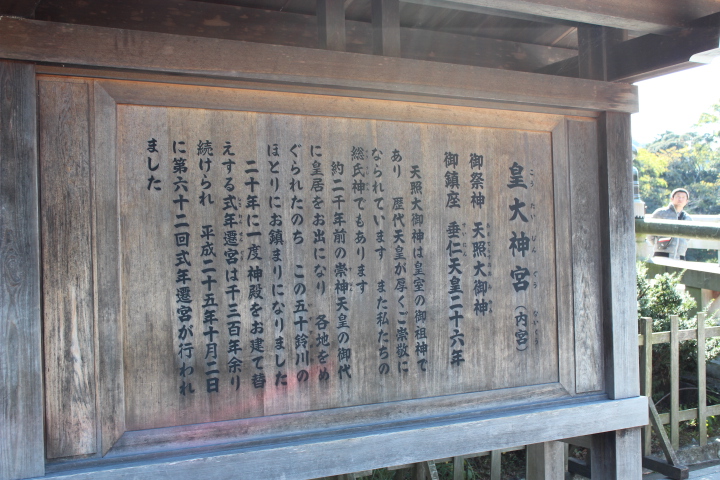 皇大神宮（内宮）
こうたいじんぐう ないくう
御祭神　天照大御神
御鎮座　垂仁天皇二十六年
天照大御神は皇室の御祖神で
あり　歴代天皇が厚くご崇敬に
なられています　また私たちの
総氏神でもあります
約二千年前の崇神天皇の御代
に皇居をお出になり　各地をめ
ぐられたのち　この五十鈴川の
ほとりにお鎮まりになりました
二十年に一度神殿をお建て替
えする式年遷宮は千三百年余り
続けられ　平成二十五年十月二日
に第六十二回式年遷宮が行われ
ました